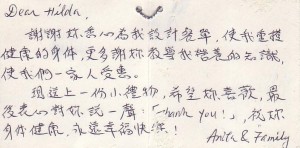 Dear Hilda,
謝謝妳悉心為我設計餐單，使我重獲
健康的身体，更多謝妳教導我營養的知識，
使我們一家人受惠。
現送上一份小禮物，希望妳喜歡，最
後衷心對妳說一聲：「Thank you!」，祝妳
身体健康，永遠幸福快樂！
Anita & Family